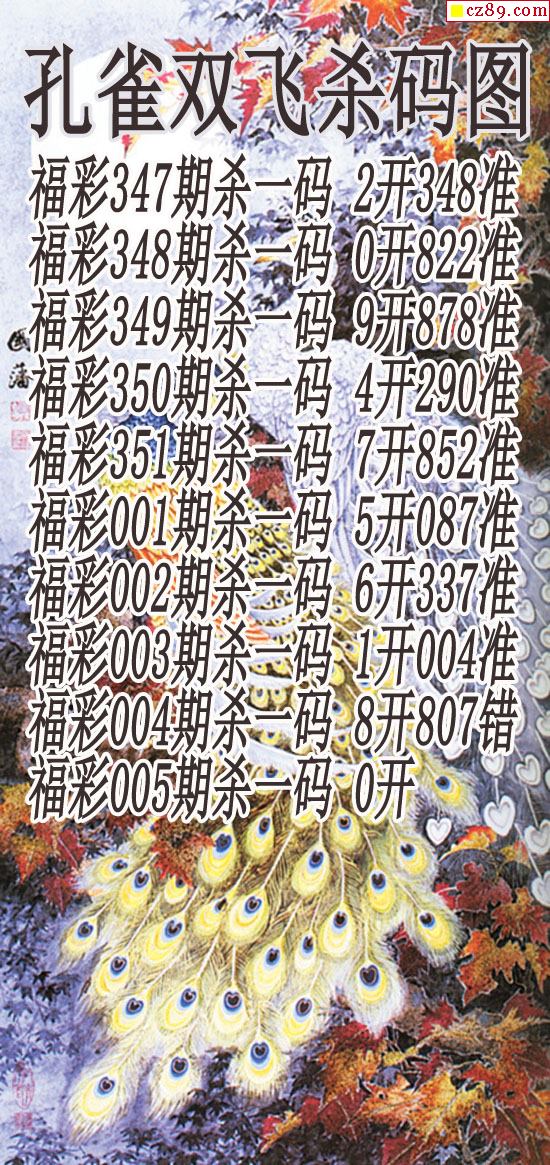 cz89.com
孔雀双飞杀码图
福彩347期杀一码 2开348准
福彩348期杀一码 0开822准
福彩349期杀一码 9开878准
福彩350期杀一码 4开290准
福彩351期杀一码 7开852准
福彩001期杀一码 5开087准
福彩002期杀一码 6开337准
福彩003期杀一码 1开004准
福彩004期杀一码 8开807错
福彩005期杀一码 0开